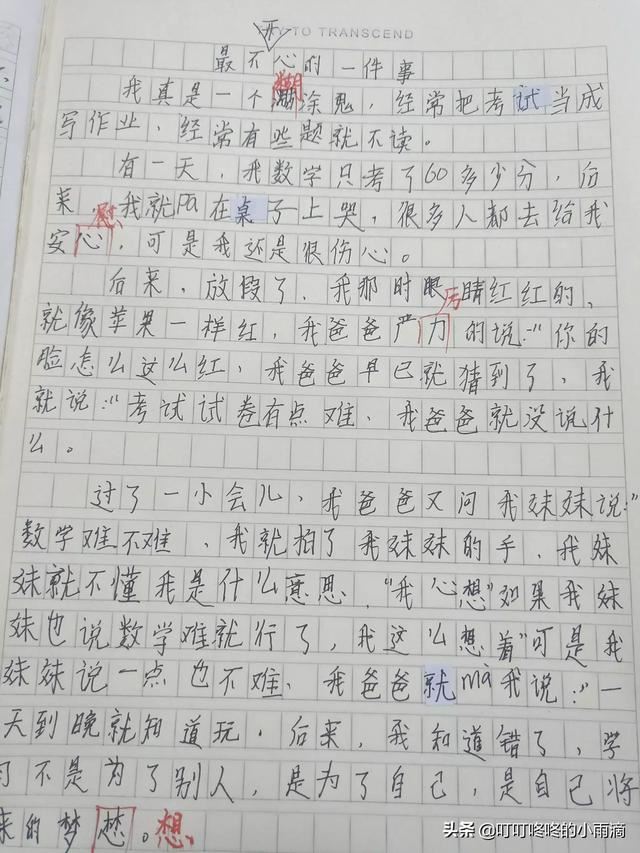 TO TRANSCEND
开
最不心的一件事
糊
我真是一个糊涂鬼，经常把考试当成
写作业，经常有些题就不读。
有一天，我数学只考了60多少分，后
来，我就pa在桌子上哭，很多人都去给我
慰
安心，可是我还是很伤心。
后来，放假了，我那时眼睛红红的，
厉
就像苹果一样红，我爸爸严力的说：“你的
脸怎么这么红，我爸爸早已就猜到了，我
就说：“考试试卷有点难，我爸爸就没说什
么。
过了一小会儿，我爸爸又问我妹妹说：“
数学难不难，我就拍了我妹妹的手，我妹
妹就不懂我是什么意思，“我心想”如果我妹
妹也说数学难就行了，我这么想着“可是我
妹妹说一点也不难，我爸爸就mà我说：“一
天到晚就知道玩，后来，我知道错了，学
习不是为了别人，是为了自己，是自己将
来的梦。想
头条 @叮叮咚咚的小雨滴